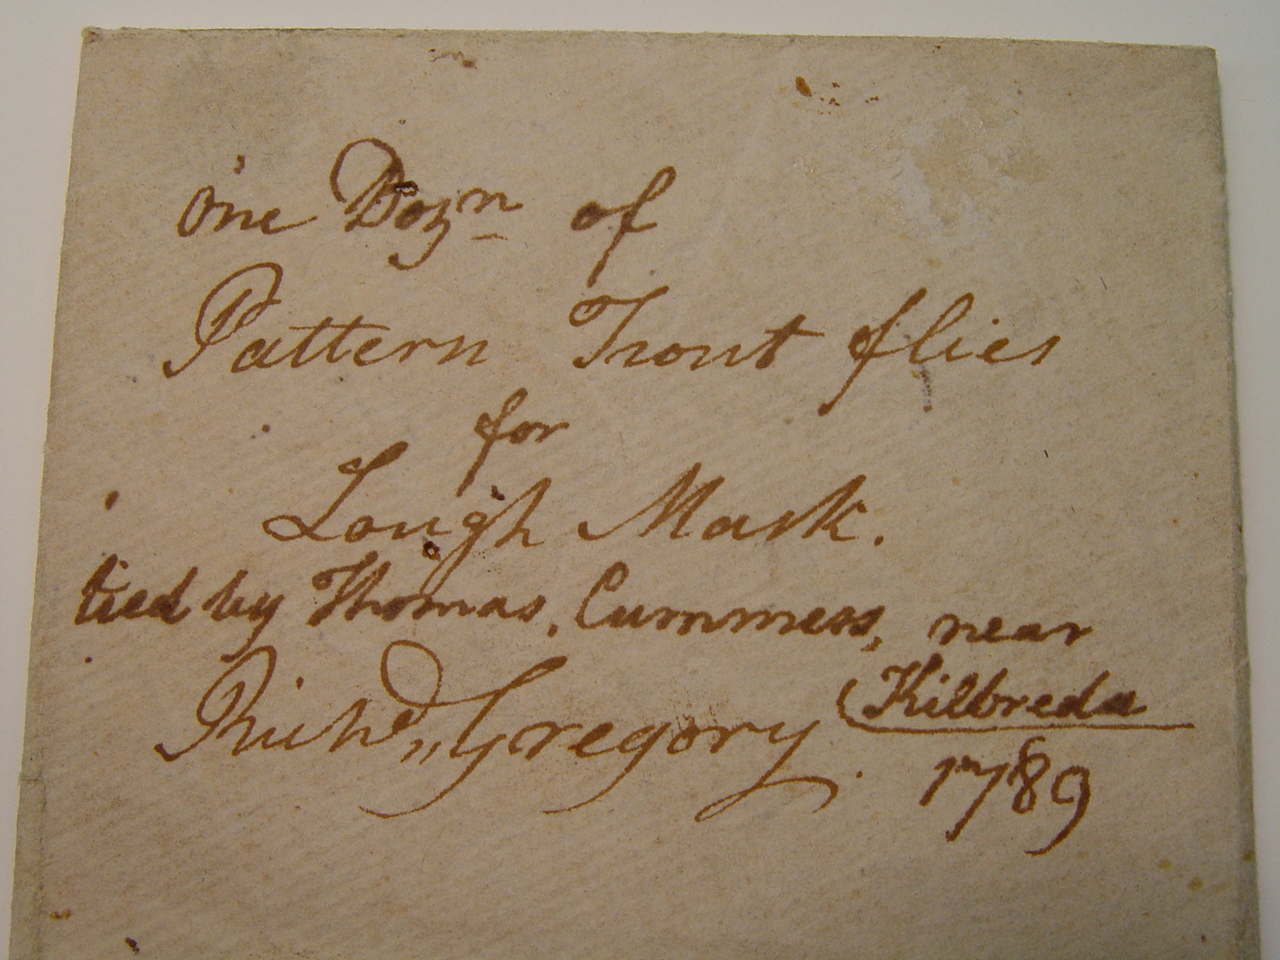 one Dozn of
Pattern Trout flies
for
Lough Mask.
tied by Thomas, Cummess, near
Kilbreda
Richd,, Gregory.
1789